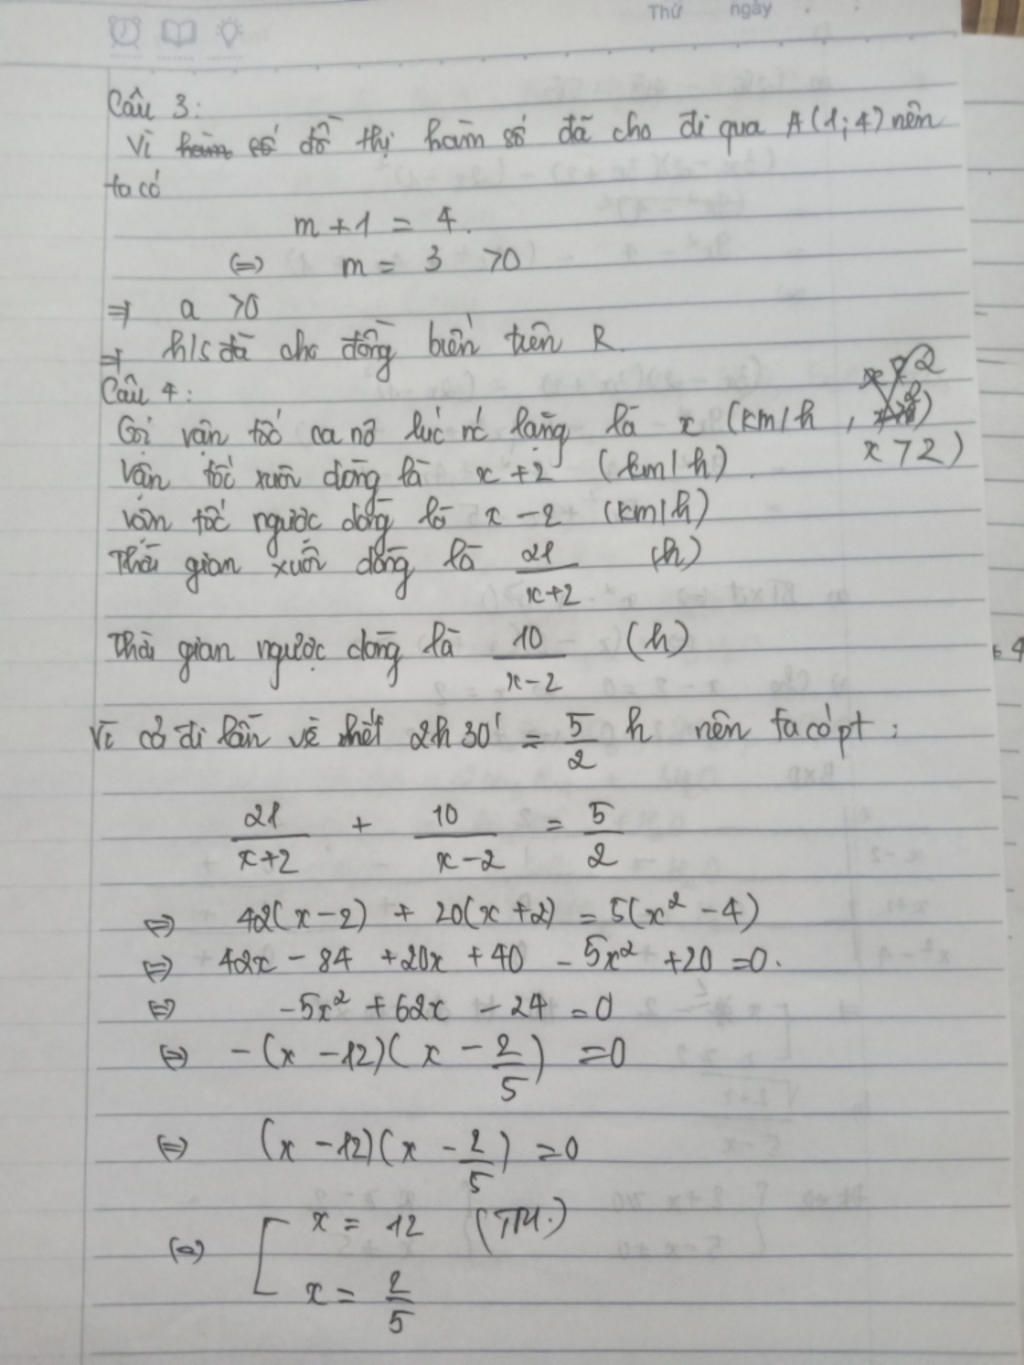 Thứ ngày
Câu 3:
Vì hàm số đồ thị hàm số đã cho đi qua A(1;4) nên
ta có
m + 1 = 4.
(=) m = 3 >0
=> a >0
=> h/s đã cho đồng biến trên R.
Câu 4:
Gọi vận tốc ca nô lúc nc lặng là x (km/h, x > 2)
Vận tốc xuôi dòng là x+2 (km/h)
vận tốc ngược dòng là x - 2 (km/h)
Thời gian xuôi dòng là 21/(x+2) (h)
Thời gian ngược dòng là 10/(x-2) (h)
Vì cả đi lẫn về hết 2h30' = 5/2 h nên ta có pt:
21/(x+2) + 10/(x-2) = 5/2
(=) 42(x-2) + 20(x+2) = 5(x² - 4)
(=) 42x - 84 + 20x + 40 - 5x² + 20 = 0.
(=) -5x² + 62x - 24 = 0
(=) -(x - 12)(x - 2/5) = 0
(=) (x - 12)(x - 2/5) = 0
(=) [ x = 12 (TM.)
x = 2/5